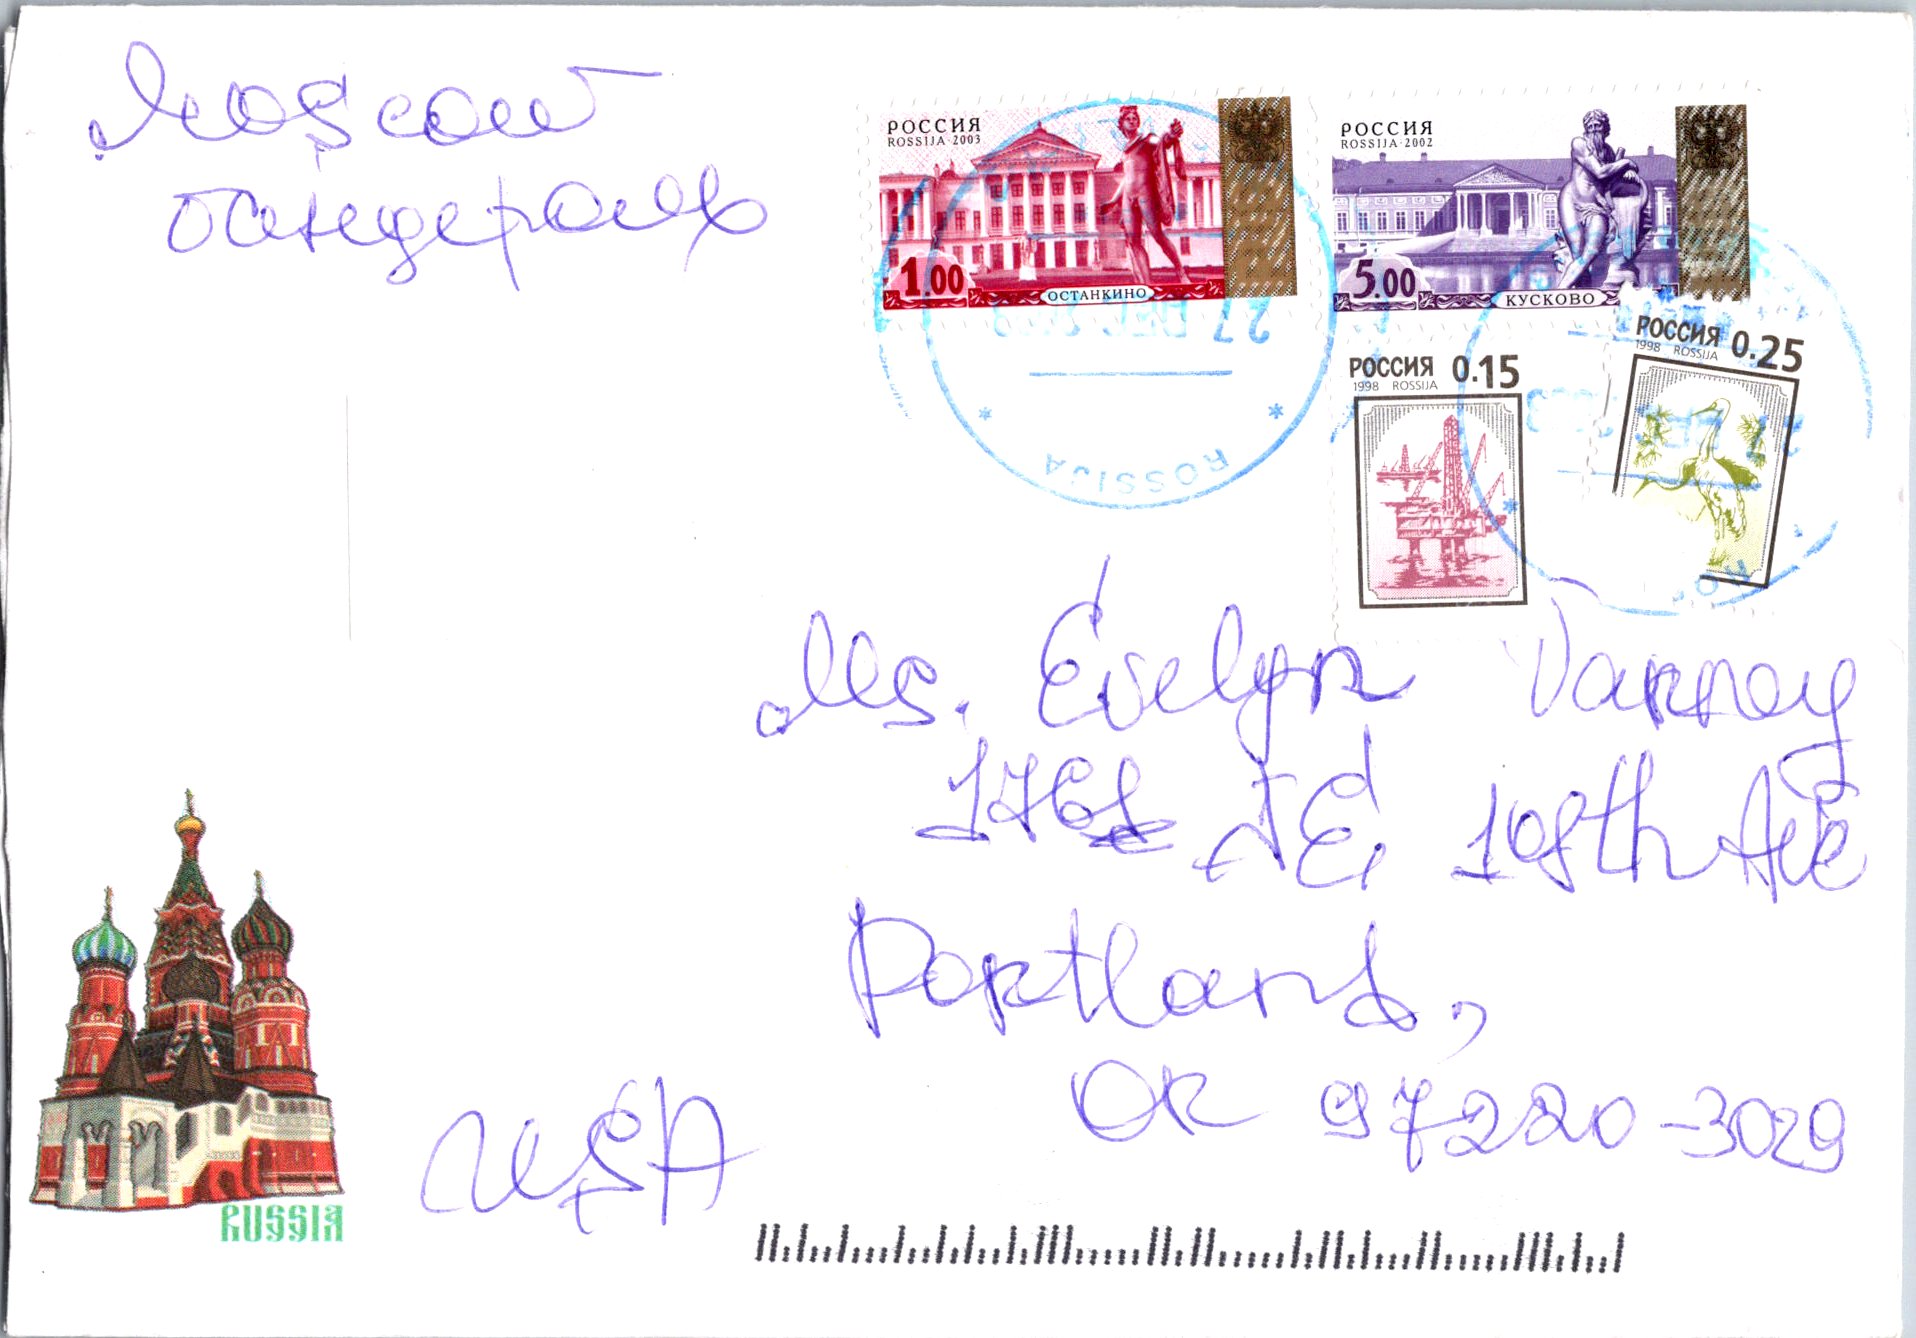 Moscow
бандероль
РОССИЯ
ROSSIJA · 2003
1.00
ОСТАНКИНО
РОССИЯ
ROSSIJA · 2002
5.00
КУСКОВО
27 DEC
ROSSIJA
РОССИЯ 0.15
1998 ROSSIJA
РОССИЯ 0.25
1998 ROSSIJA
Ms. Evelyn Varney
NE 108th Ave
Portland,
OR 97220-3029
USA
RUSSIA